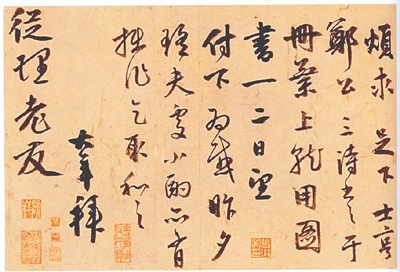 煩求 足下 士亨
鄭公三詩書之于
冊葉上就用圖
書一二日望
付下為感昨夕
夫處小酌亦有
拙作乞取和之
大年拜
從理老友